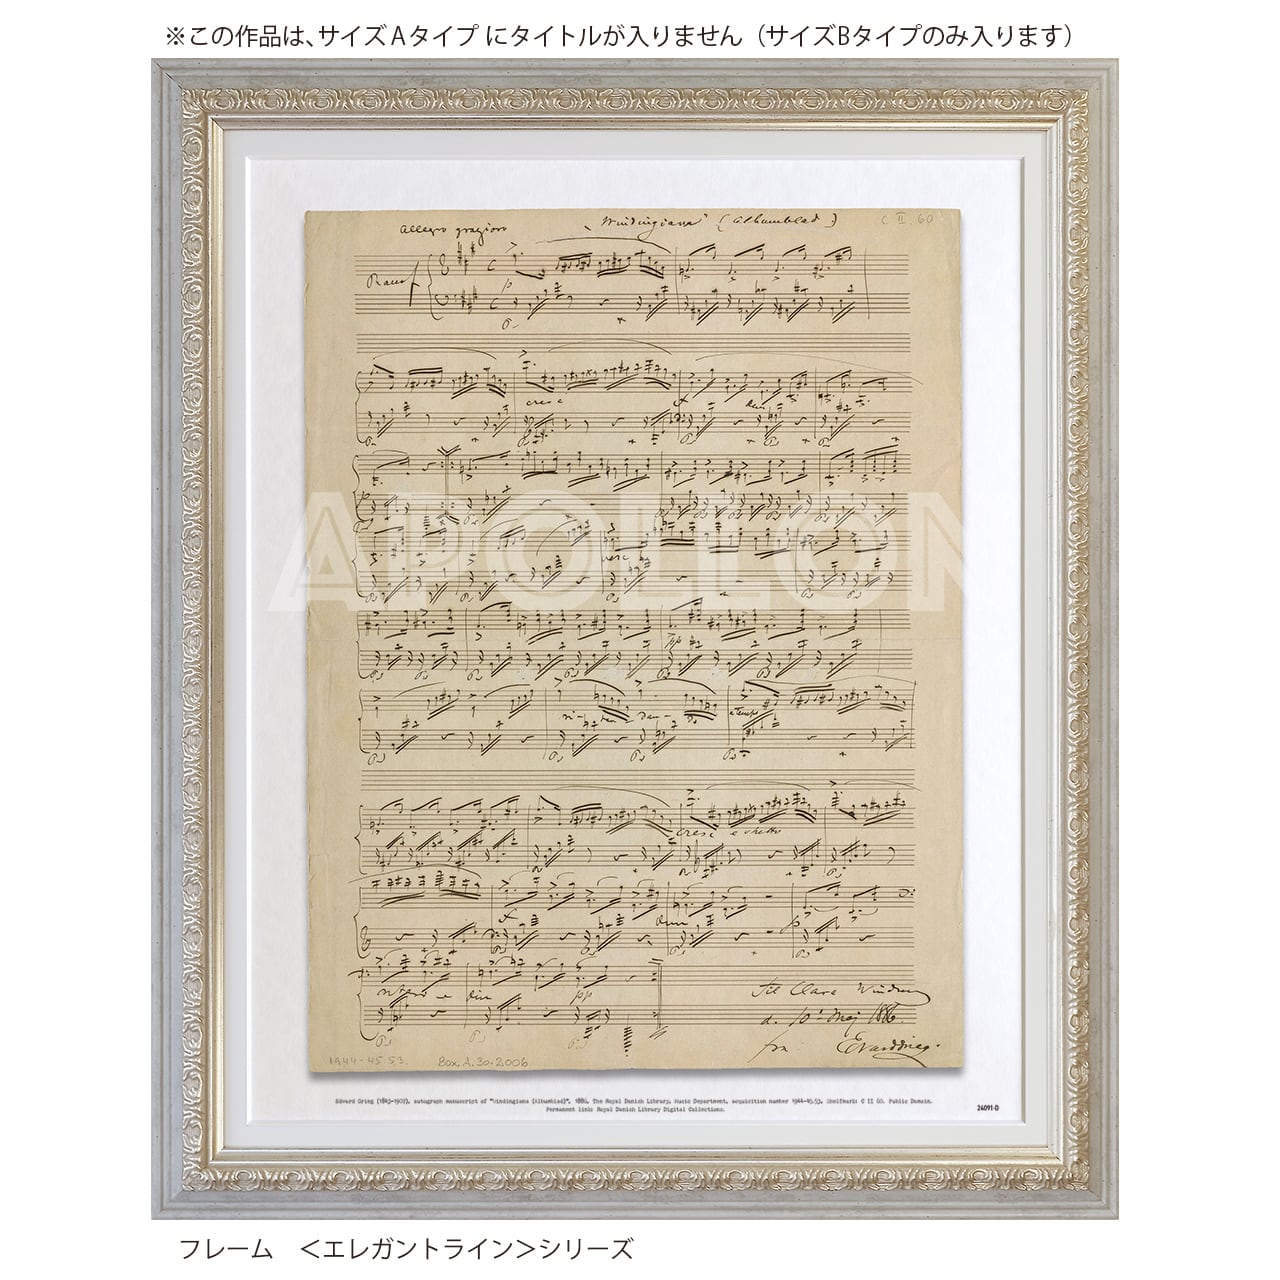 ※この作品は、サイズAタイプ にタイトルが入りません（サイズBタイプのみ入ります）
Allegro grazioso
"Windingiana" (Albumblad.)
C II. 60
p
cresc
f
dim
p
cresc
pp
a tempo
cresc e stretto
f
dim
p
dim
pp
APOLLON
Til Clara Winding
d. 10' Maj 1886.
fra
Edvard Grieg.
1944-45.53.
Box A.30.2006
Edvard Grieg (1843-1907), autograph manuscript of "Windingiana (Albumblad)", 1886, The Royal Danish Library, Music Department, acquisition number 1944-45.53, Shelfmark: C II 60. Public Domain.
Permanent link: Royal Danish Library Digital Collections.
24091-D
フレーム　＜エレガントライン＞シリーズ